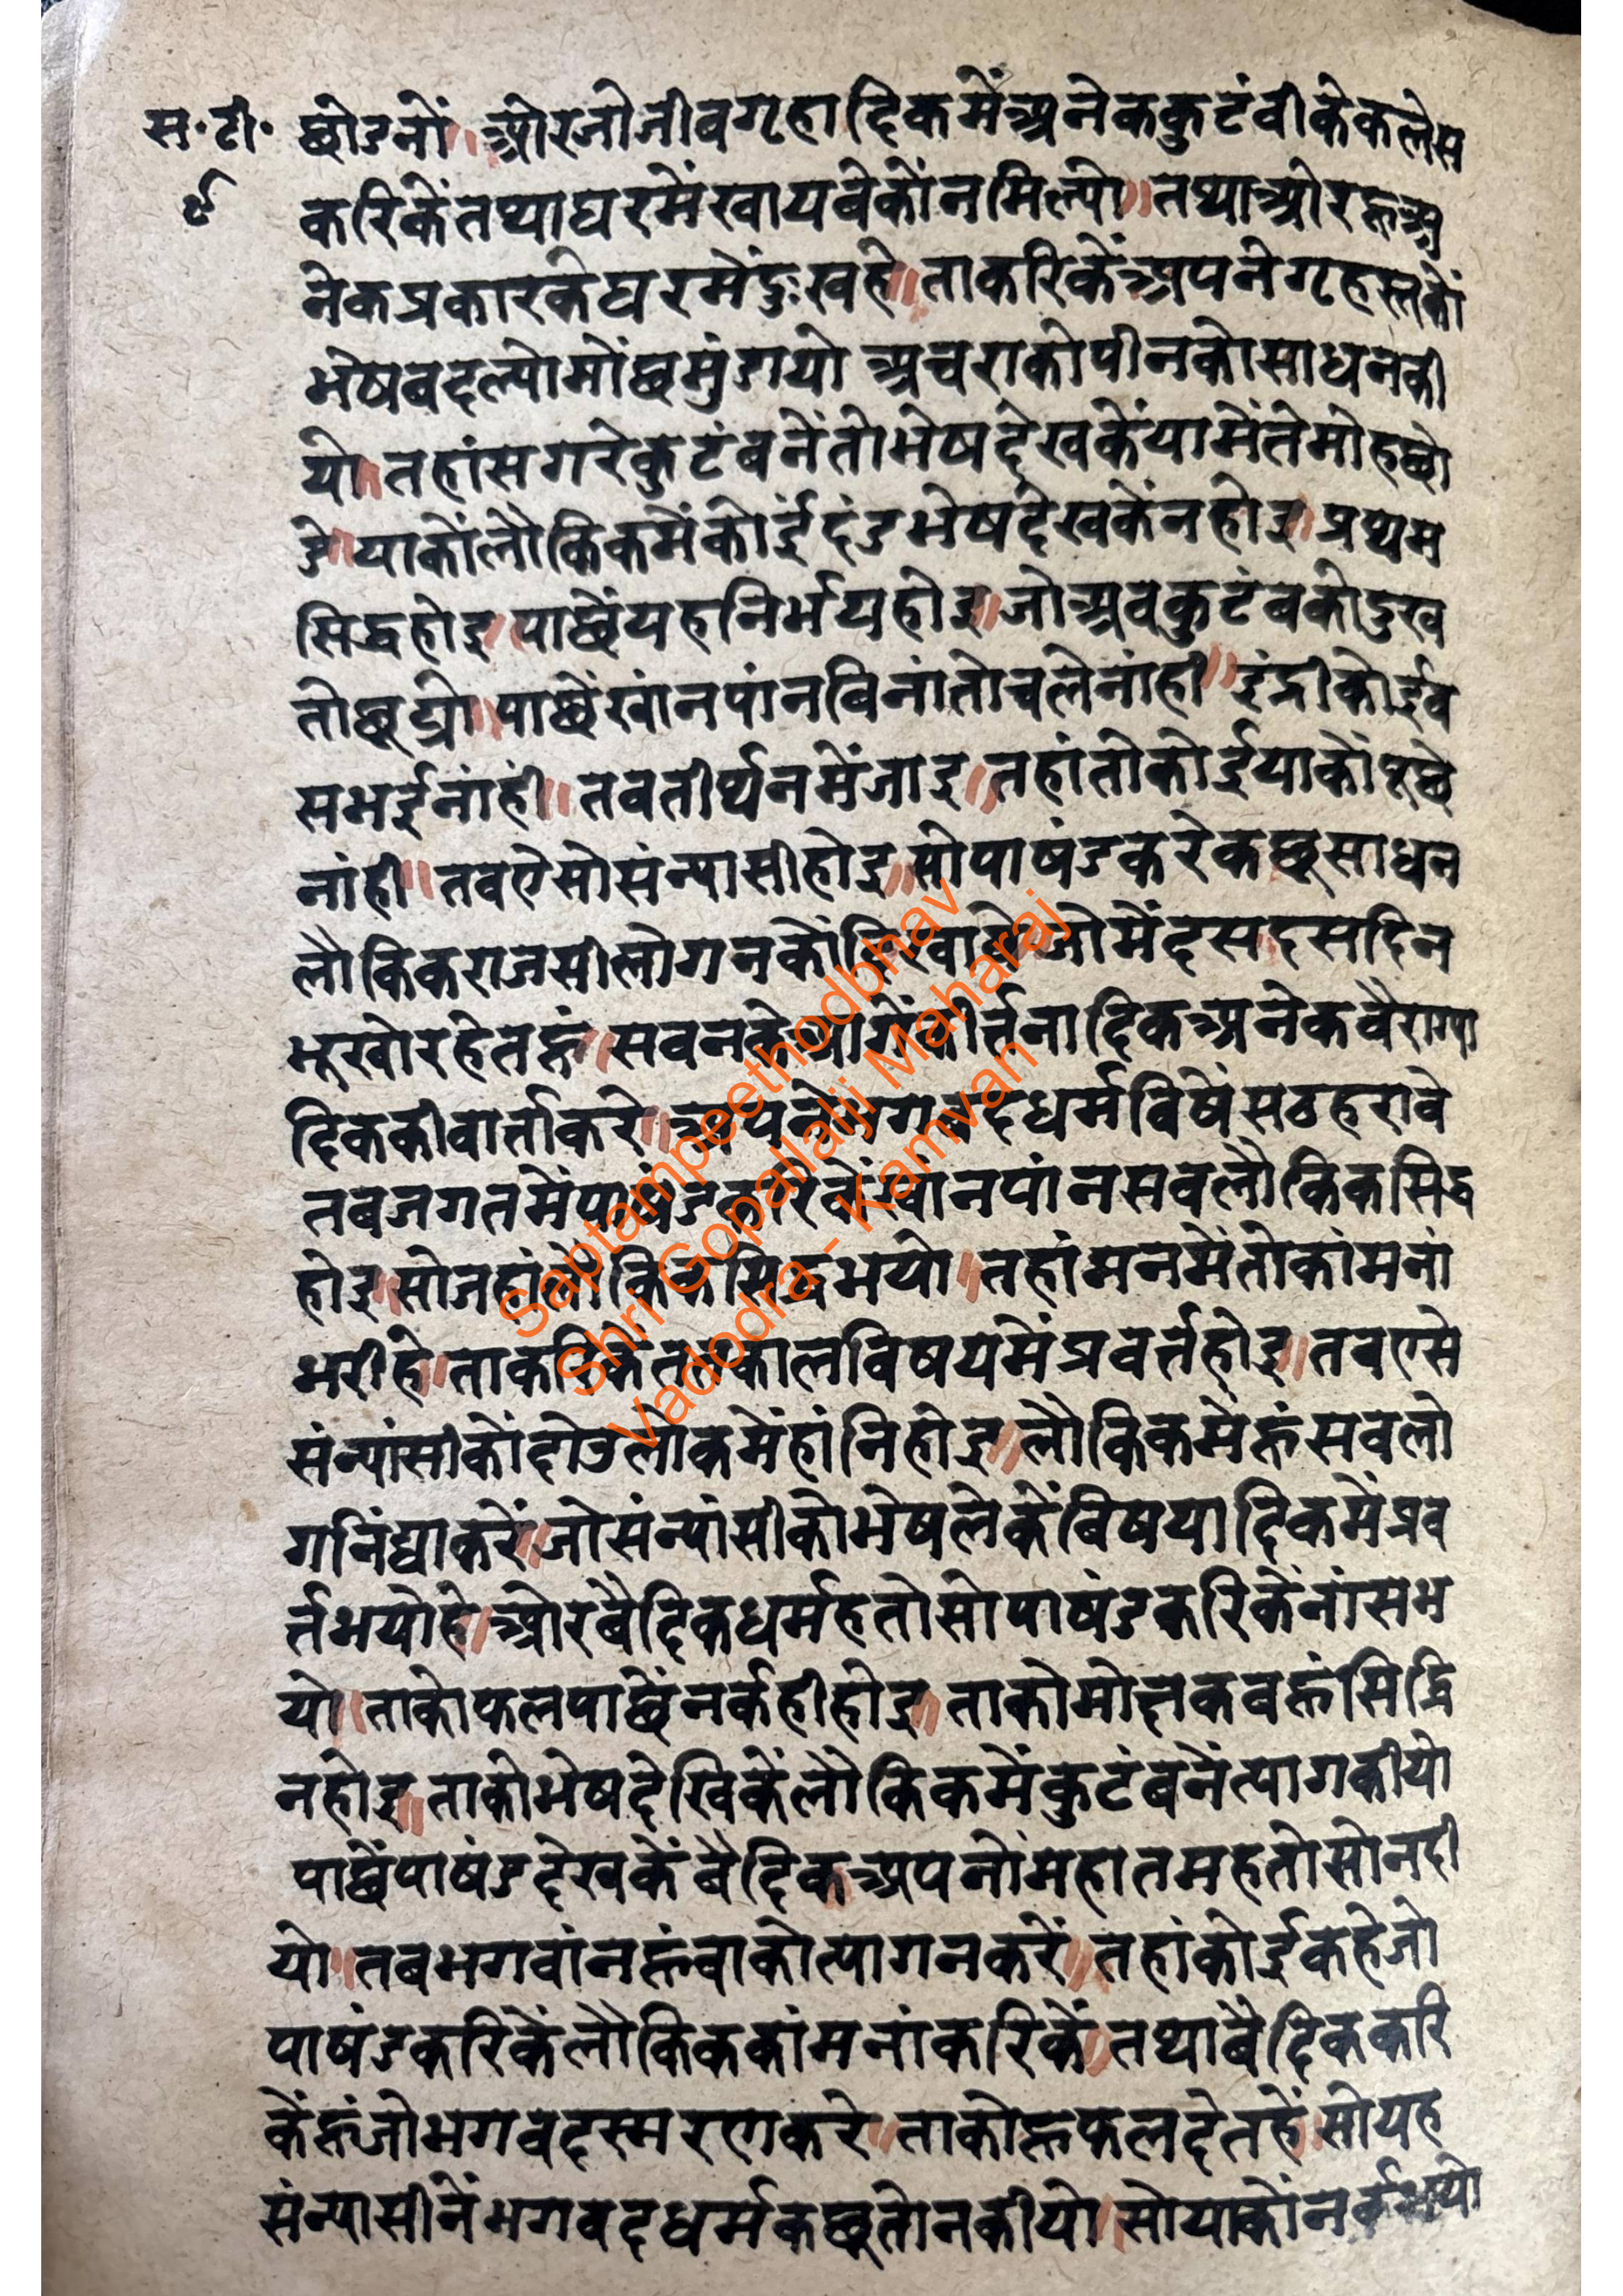 स॰टी॰ छोडनों ॥ ओरजोजीवगृहादिकमेंअनेककुटंवीकेकलेस
९ करिकेंतथाघरमेंखायवेकोंनमिल्यो ॥ तथाओरहूअ
नेकप्रकारकेघरमेंदुःखहे ॥ ताकरिकेंअपनेगृहस्तकों
भेषबदल्योमोंछमुंडायो अचराकोपीनकोसाधनकी
यो ॥ तहांसगरेकुटंबनेंतोभेषदेखकेंयामेंतेमोहछो
डे ॥ याकोंलौकिकमेंकोईदंडभेषदेखकेंनहोइ ॥ प्रथम
सिद्धहोइ ॥ पाछेंयहनिर्भयहोइ ॥ जोअवकुटंबकोदुख
तोछूट्यो ॥ पाछेंखांनपांनबिनांतोचलेनांही ॥ इंद्रीकोईव
सभईनांहीं ॥ तवतीर्थनमेंजाइ ॥ तहांतोकोईयाकोंपूछे
नांही ॥ तवऐसोसंन्यासीहोइ ॥ सोपाषंडकरेकछूसाधन
लौकिकराजसीलोगनकोंदिखावे ॥ जोमेंदसदसदिन
भूखोरहेतहूं ॥ सवनकेआगेंकीर्त्तनादिकअनेकवैराग्या
दिककीवार्ताकरे ॥ अपनेभगवदधर्मविषेंसठहरावे
तबजगतमेंपाषंडकरिकेंखांनपांनसवलौकिकसिद्ध
होइ ॥ सोजहांलौकिकसिद्धभयो ॥ तहांमनमेंतोकांमनां
भरीहे ॥ ताकरिकेंततकालविषयमेंप्रवर्त्तहोइ ॥ तबएसे
संन्यांसीकोंदोउलोकमेंहांनिहोइ ॥ लौकिकमेंहूंसवलो
गनिंद्याकरें ॥ जोसंन्यांसीकोभेषलेकेंबिषयादिकमेंप्रव
र्त्तभयोहे ॥ ओरबैदिकधर्महतोसोपाषंडकरिकेंनांसभ
यो ॥ ताकोफलपाछेंनर्कहीहोइ ॥ ताकोमोक्षकबहूंसिद्धि
नहोइ ॥ ताकोभेषदेखिकेंलौकिकमेंकुटंबनेंत्यागकीयो
पाछेंपाषंडदेखकेंबैदिकअपनोंमहातमहतोसोनदी
यो ॥ तबभगवांनहूंवाकोत्यागनकरें ॥ तहांकोईकहेजो
पाषंडकरिकेंलौकिककांमनांकरिकें ॥ तथाबैदिककरि
केंहूंजोभगवदस्मरणकरे ॥ ताकोहूफलदेतहें ॥ सोयह
संन्यासीनेंभगवदधर्मकछूतोनकीयो ॥ सोयाकोंनर्कभयो
Saptampeethodbhav
Shri Gopallalji Maharaj
Vadodra - Kamvan